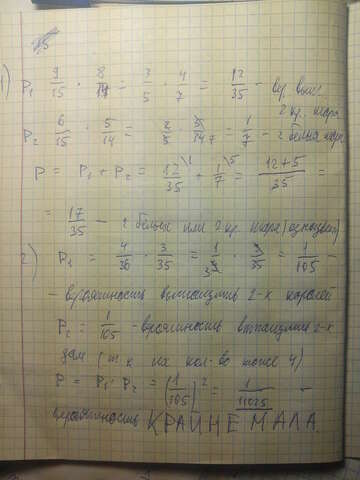 1) P₁ 9/15 · 8/14 = 3/5 · 4/7 = 12/35 – вер. выт.
2 кр. шара
P₂ 6/15 · 5/14 = 2/5 · 5/14 7 = 1/7 – 2 белых шара
P = P₁ + P₂ = 12/35 \1 + 1/7 \5 = 12+5/35 =
= 17/35 – 2 белых или 2 кр. шара (одноцвет)
2) P₁ = 4/36 · 3/35 = 1/9 3 · 3/35 = 1/105 –
– вероятность 2-х королей
P₂ = 1/105 – вероятность 2-х
дам (т.к их кол-во тоже 4)
P = P₁ · P₂ = (1/105)² = 1/11025 –
вероятность КРАЙНЕ МАЛА.